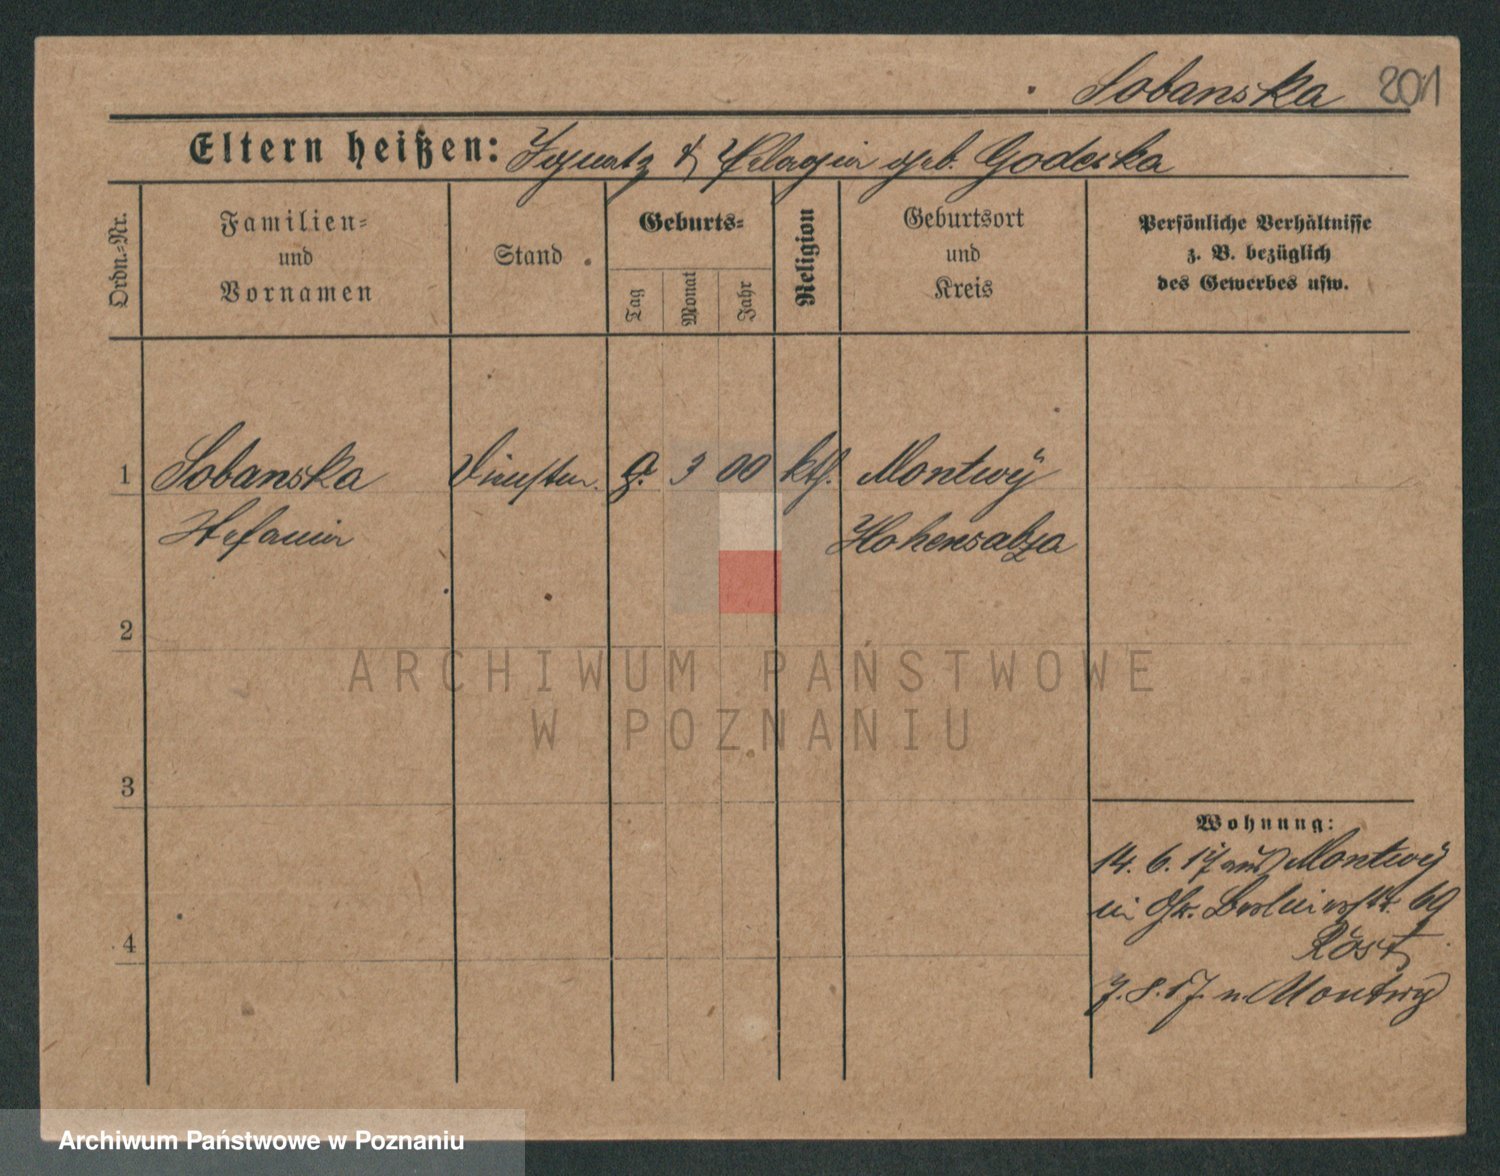 Sobanska 201
Eltern heißen: Ignatz & Pelagia geb. Godeska
Ordn.-Nr.
Familien- und Vornamen
Stand
Geburts-
Tag
Monat
Jahr
Religion
Geburtsort und Kreis
Persönliche Verhältnisse
z. B. bezüglich
des Gewerbes usw.
1 Sobanska 9. 3 00 kth. Montwy
Stefania Hohensalza
2
3
4
Wohnung:
14. 6. 17 aus Montwy
69
Rost
7. 8. 17. n. Montwy
ARCHIWUM PAŃSTWOWE
W POZNANIU
Archiwum Państwowe w Poznaniu